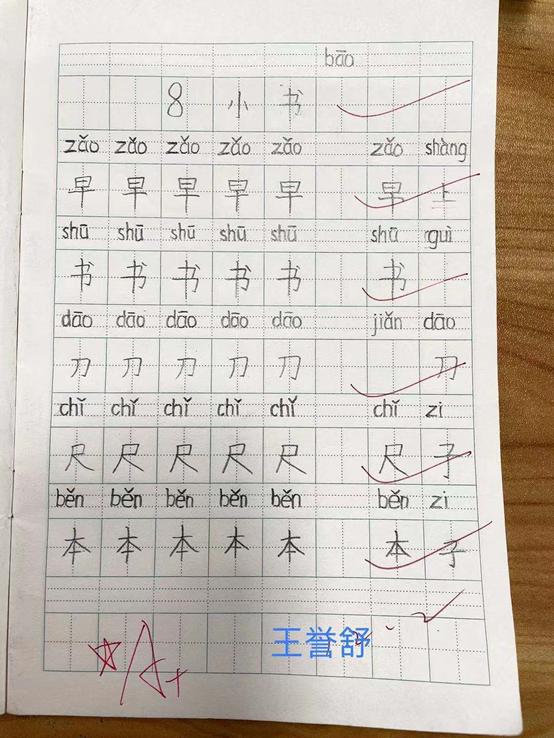 bāo
8 小 书
zǎo zǎo zǎo zǎo zǎo zǎo shàng
早 早 早 早 早 早 上
shū shū shū shū shū shū guì
书 书 书 书 书 书
dāo dāo dāo dāo dāo jiǎn dāo
刀 刀 刀 刀 刀 刀
chǐ chǐ chǐ chǐ chǐ chǐ zi
尺 尺 尺 尺 尺 尺 子
běn běn běn běn běn běn zi
本 本 本 本 本 本 子
A+ 王誉舒